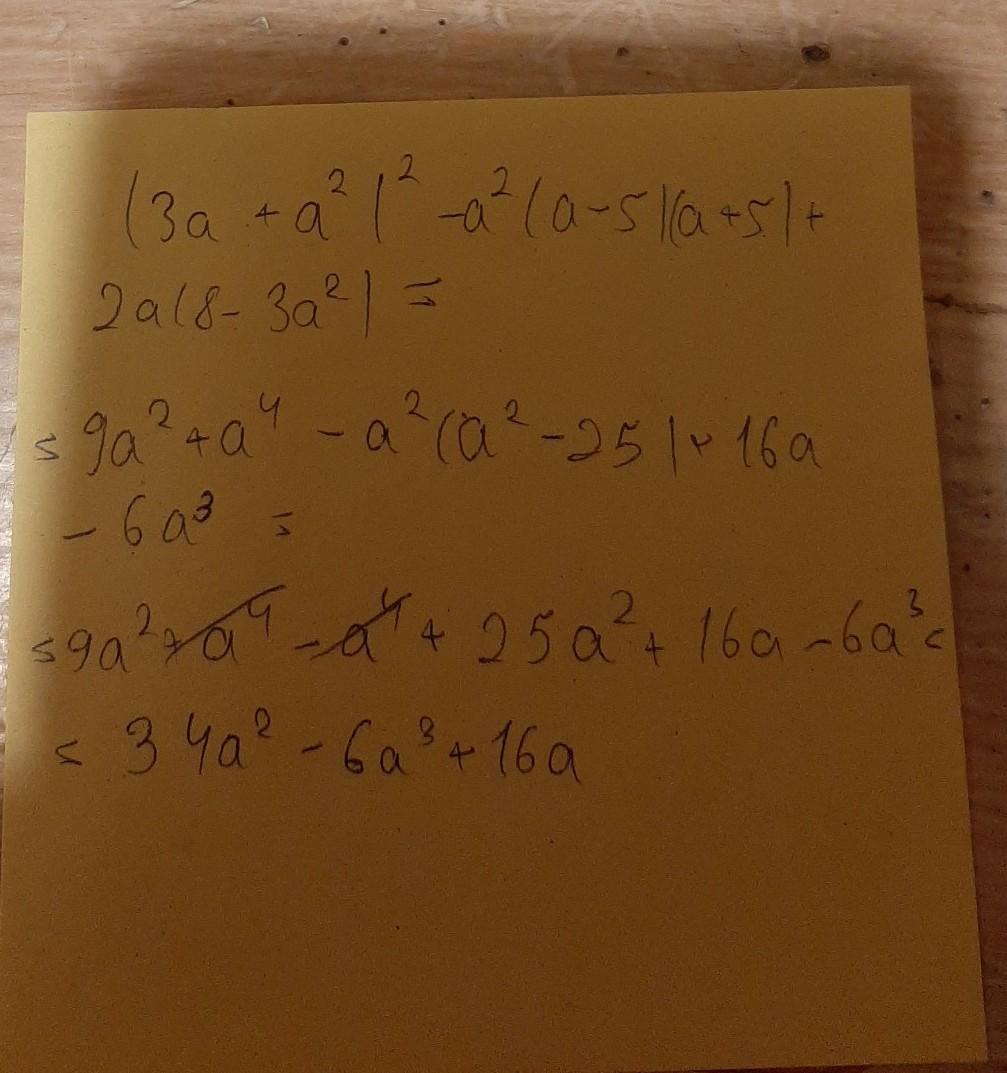 (3a + a²)² - a²(a - 5)(a + 5) +
2a(8 - 3a²) =
= 9a² + a⁴ - a²(a² - 25) + 16a
- 6a³ =
= 9a² + a⁴ - a⁴ + 25a² + 16a - 6a³ =
= 34a² - 6a³ + 16a